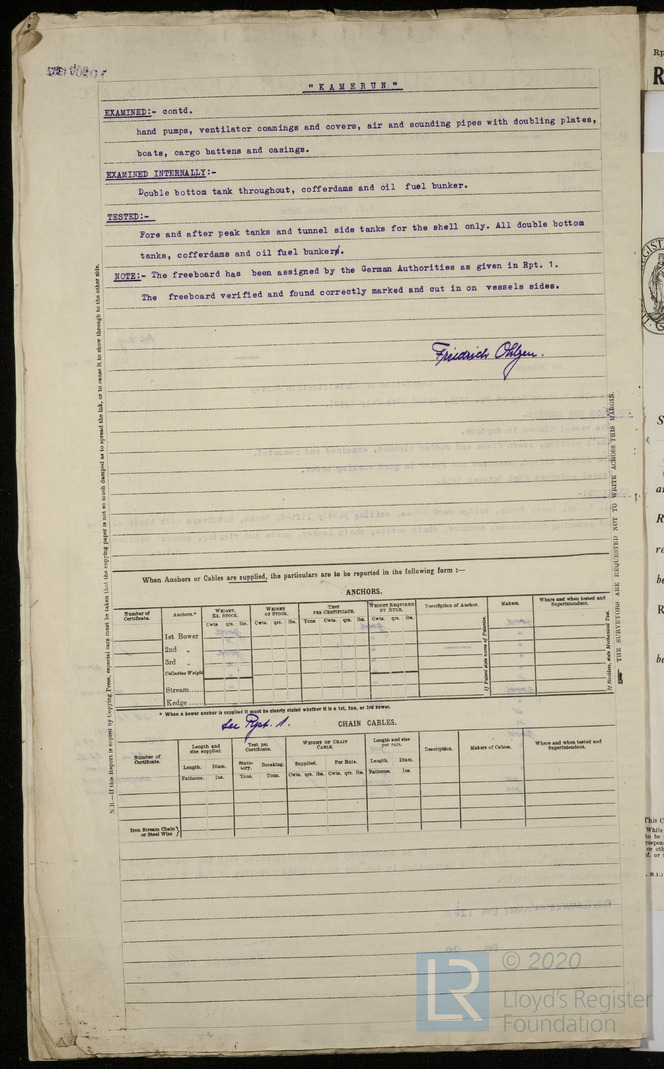 "KAMERUN"
EXAMINED:- contd.
hand pumps, ventilator coamings and covers, air and sounding pipes with doubling plates,
boats, cargo battens and casings.
EXAMINED INTERNALLY:-
Double bottom tank throughout, cofferdams and oil fuel bunker.
TESTED:-
Fore and after peak tanks and tunnel side tanks for the shell only. All double bottom
tanks, cofferdams and oil fuel bunker.
NOTE:- The freeboard has been assigned by the German Authorities as given in Rpt. 1.
The freeboard verified and found correctly marked and cut in on vessels sides.
Friedrich Ohlsen.
N.B.—If this Report is copied by Copying Press, especial care must be taken that the copying paper is not so much damped as to spread the ink, or to cause it to show through to the other side.
THE SURVEYORS ARE REQUESTED NOT TO WRITE ACROSS THIS MARGIN.
When Anchors or Cables are supplied, the particulars are to be reported in the following form :—
ANCHORS.
Number of Certificate. Anchors.* WEIGHT, EX. STOCK. WEIGHT OF STOCK. TEST PER CERTIFICATE. WEIGHT REQUIRED BY RULE. Description of Anchor. Makers. Where and when tested and Superintendent.
Cwts. qrs. lbs. Cwts. qrs. lbs. Tons Cwts. qrs. lbs. Cwts. qrs. lbs.
If Patent state name of Patentee.
If Stockless, state Mechanical Test.
1st Bower
2nd "
3rd "
Collective Weight
Stream
Kedge
* When a bower anchor is supplied it must be clearly stated whether it is a 1st, 2nd, or 3rd bower.
See Rpt. 1.
CHAIN CABLES.
Number of Certificate. Length and size supplied. Test per Certificate. WEIGHT OF CHAIN CABLE. Length and size per rule. Description. Makers of Cables. Where and when tested and Superintendent.
Length. Diam. Statutory. Breaking. Supplied. Per Rule. Length. Diam.
Fathoms. Ins. Tons. Tons. Cwts. qrs. lbs. Cwts. qrs. lbs. Fathoms. Ins.
Iron Stream Chain
or Steel Wire
LR
© 2020
Lloyd's Register
Foundation